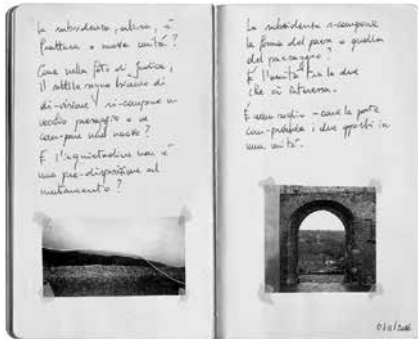 La subsidenza, allora, è
frattura o nuova unità?
Come nella foto di Giudice,
il sottile segno bianco di
di-visione ri-compone un
vecchio paesaggio o ne
com-pone uno nuovo?
E l'inquietudine non è
una pre-disposizione al
mutamento?
La subsidenza s-compone
la forma del paese o quella
del paesaggio?
È l'unità tra le due
che ci interessa.
È uno – come la porta
com-prenda i due opposti in
una unità.